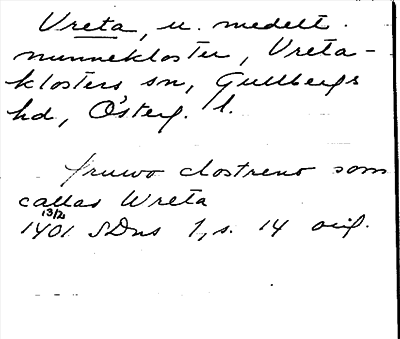 Vreta, u. medelt.
nunnekloster, Vreta-
klosters sn, Gullbergs
hd, Österg. l.
fruwo clostreno som
callas Wreta
13/2
1401 SDns 1, s. 14 orig.